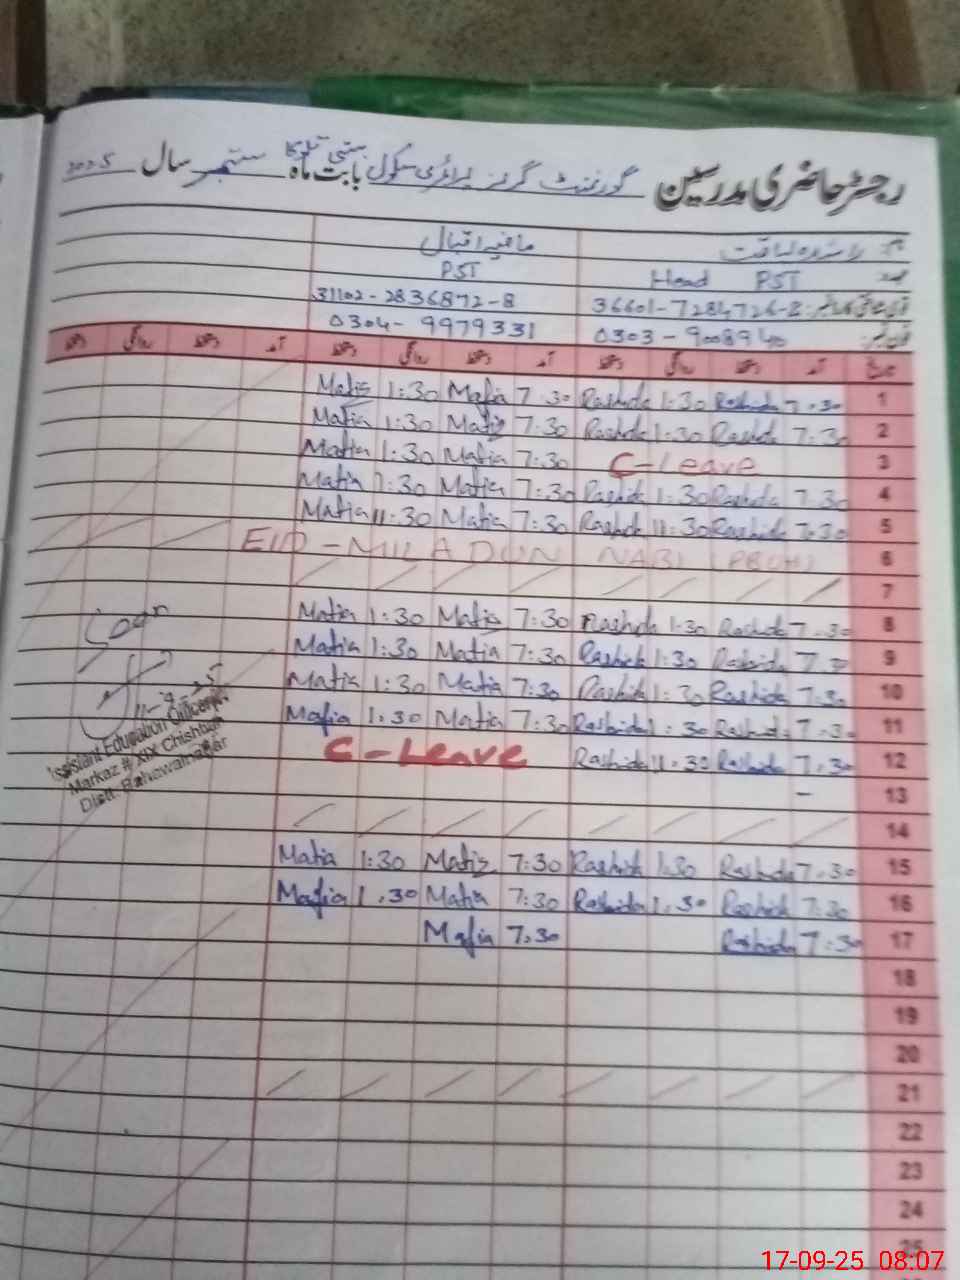 رجسٹر حاضری مدرسین گورنمنٹ گرلز پرائمری سکول بستی بابت ماہ ستمبر سال 2025
راشدہ لیاقت اقبال
Head PST PST
36601-7284726-8 31102-2836872-8
0303-9008940 0304-9979331
Mafia 1:30 Mafia 7:30 Rashida 1:30 Rashida 7:30 1
Mafia 1:30 Mafia 7:30 Rashida 1:30 Rashida 7:30 2
Mafia 1:30 Mafia 7:30 C-Leave 3
Mafia 1:30 Mafia 7:30 Rashida 1:30 Rashida 7:30 4
Mafia 11:30 Mafia 7:30 Rashida 11:30 Rashida 7:30 5
EID-MILADUN NABI (PBUH) 6
7
Mafia 1:30 Mafia 7:30 Rashida 1:30 Rashida 7:30 8
Mafia 1:30 Mafia 7:30 Rashida 1:30 Rashida 7:30 9
Mafia 1:30 Mafia 7:30 Rashida 1:30 Rashida 7:30 10
Mafia 1:30 Mafia 7:30 Rashida 1:30 Rashida 7:30 11
C-Leave Rashida 11:30 Rashida 7:30 12
13
14
Mafia 1:30 Mafia 7:30 Rashida 1:30 Rashida 7:30 15
Mafia 1:30 Mafia 7:30 Rashida 1:30 Rashida 7:30 16
Mafia 7:30 Rashida 7:30 17
18
19
20
21
22
23
24
25
Assistant Education Officer
Markaz # XIX Chishtian
Distt. Bahawalnagar
17-09-25 08:07